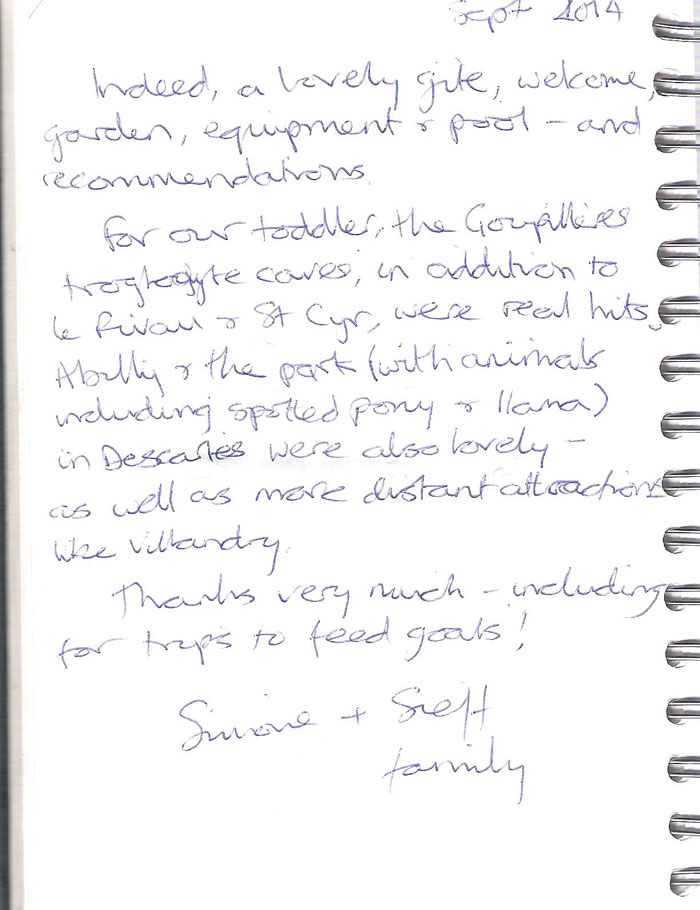 Sept 2014
Indeed, a lovely gite, welcome,
garden, equipment & pool – and
recommendations.
For our toddler, the Goupillières
troglodyte caves, in addition to
le Rivau & St Cyr, were real hits.
Abilly & the park (with animals
including spotted pony & llama)
in Descartes were also lovely –
as well as more distant attractions
like Villandry.
Thanks very much – including
for trips to feed goats!
Simone +
family